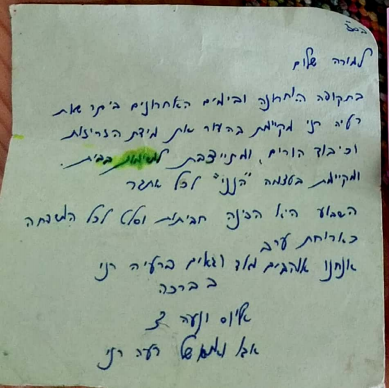 בס"ד
למורה שלום
בתקופה האחרונה ובימים האחרונים ביתר שאת
רעיה רני מקיימת בהידור את מידת הזריזות
וכיבוד הורים, ומתייצבת למשימות בבית.
ומקיימת בעצמה "הנני" לכל אתגר
השבוע היא הכינה חביתות וסלט לכל המשפחה
בארוחת ערב
אנחנו אוהבים מאד וגאים ברעיה רני
ב ברכה
ונעה
אבא ואמא של רעיה רני